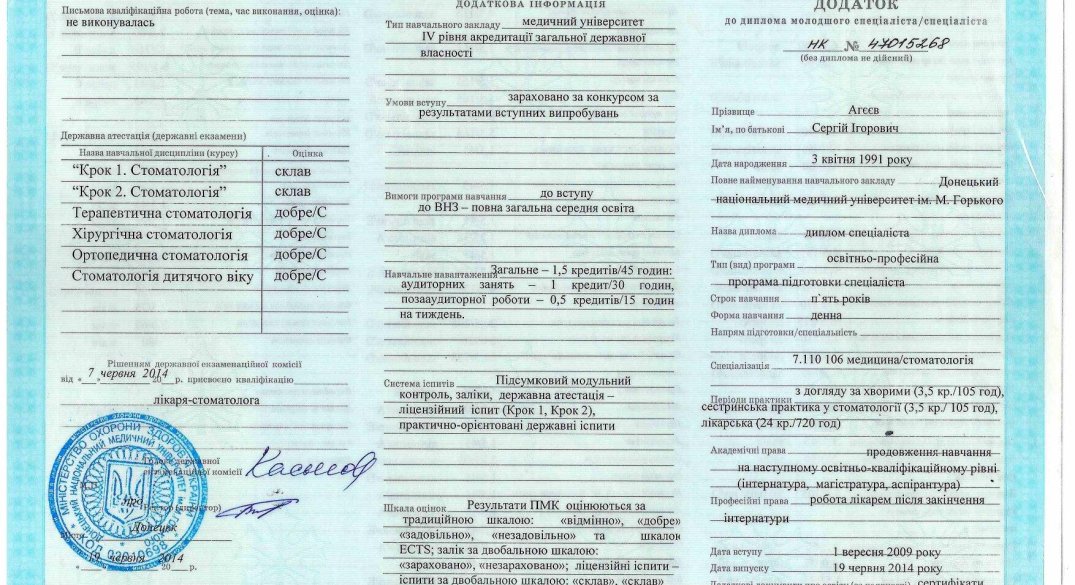 Письмова кваліфікаційна робота (тема, час виконання, оцінка):
не виконувалась
Державна атестація (державні екзамени)
Назва навчальної дисципліни (курсу) Оцінка
“Крок 1. Стоматологія” склав
“Крок 2. Стоматологія” склав
Терапевтична стоматологія добре/С
Хірургічна стоматологія добре/С
Ортопедична стоматологія добре/С
Стоматологія дитячого віку добре/С
Рішенням державної екзаменаційної комісії
від « 7 » червня 2014 р. присвоєно кваліфікацію
лікаря-стоматолога
Голова державної
екзаменаційної комісії
про
Ректор (директор)
Донецьк
Місто
19 червня 2014 р.
МІНІСТЕРСТВО ОХОРОНИ ЗДОРОВ'Я УКРАЇНИ
ДОНЕЦЬКИЙ НАЦІОНАЛЬНИЙ МЕДИЧНИЙ УНІВЕРСИТЕТ ІМ
02010698
ДОДАТКОВА ІНФОРМАЦІЯ
Тип навчального закладу медичний університет
IV рівня акредитації загальної державної
власності
Умови вступу зараховано за конкурсом за
результатами вступних випробувань
Вимоги програми навчання до вступу
до ВНЗ – повна загальна середня освіта
Навчальне навантаження Загальне – 1,5 кредитів/45 годин:
аудиторних занять – 1 кредит/30 годин,
позааудиторної роботи – 0,5 кредитів/15 годин
на тиждень.
Система іспитів Підсумковий модульний
контроль, заліки, державна атестація –
ліцензійний іспит (Крок 1, Крок 2),
практично-орієнтовані державні іспити
Шкала оцінок Результати ПМК оцінюються за
традиційною шкалою: «відмінно», «добре»
«задовільно», «незадовільно» та шкалою
ECTS; залік за двобальною шкалою:
«зараховано», «незараховано»; ліцензійні іспити –
іспити за двобальною шкалою: «склав», «склав»
ДОДАТОК
до диплома молодшого спеціаліста/спеціаліста
НК № 47015268
(без диплома не дійсний)
Прізвище Агєєв
Ім'я, по батькові Сергій Ігорович
Дата народження 3 квітня 1991 року
Повне найменування навчального закладу Донецький
національний медичний університет ім. М. Горького
Назва диплома диплом спеціаліста
Тип (вид) програми освітньо-професійна
програма підготовки спеціаліста
Строк навчання п`ять років
Форма навчання денна
Напрям підготовки/спеціальність
7.110 106 медицина/стоматологія
Спеціалізація
Періоди практики з догляду за хворими (3,5 кр./105 год),
сестринська практика у стоматології (3,5 кр./ 105 год),
лікарська (24 кр./720 год)
Академічні права продовження навчання
на наступному освітньо-кваліфікаційному рівні
(інтернатура, магістратура, аспірантура)
Професійні права робота лікарем після закінчення
інтернатури
Дата вступу 1 вересня 2009 року
Дата випуску 19 червня 2014 року
сертифікати